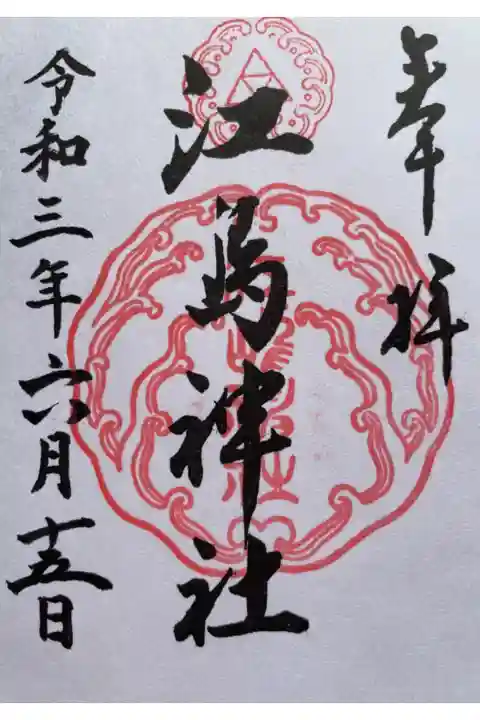 奉拝
江島神社
令和三年六月十五日